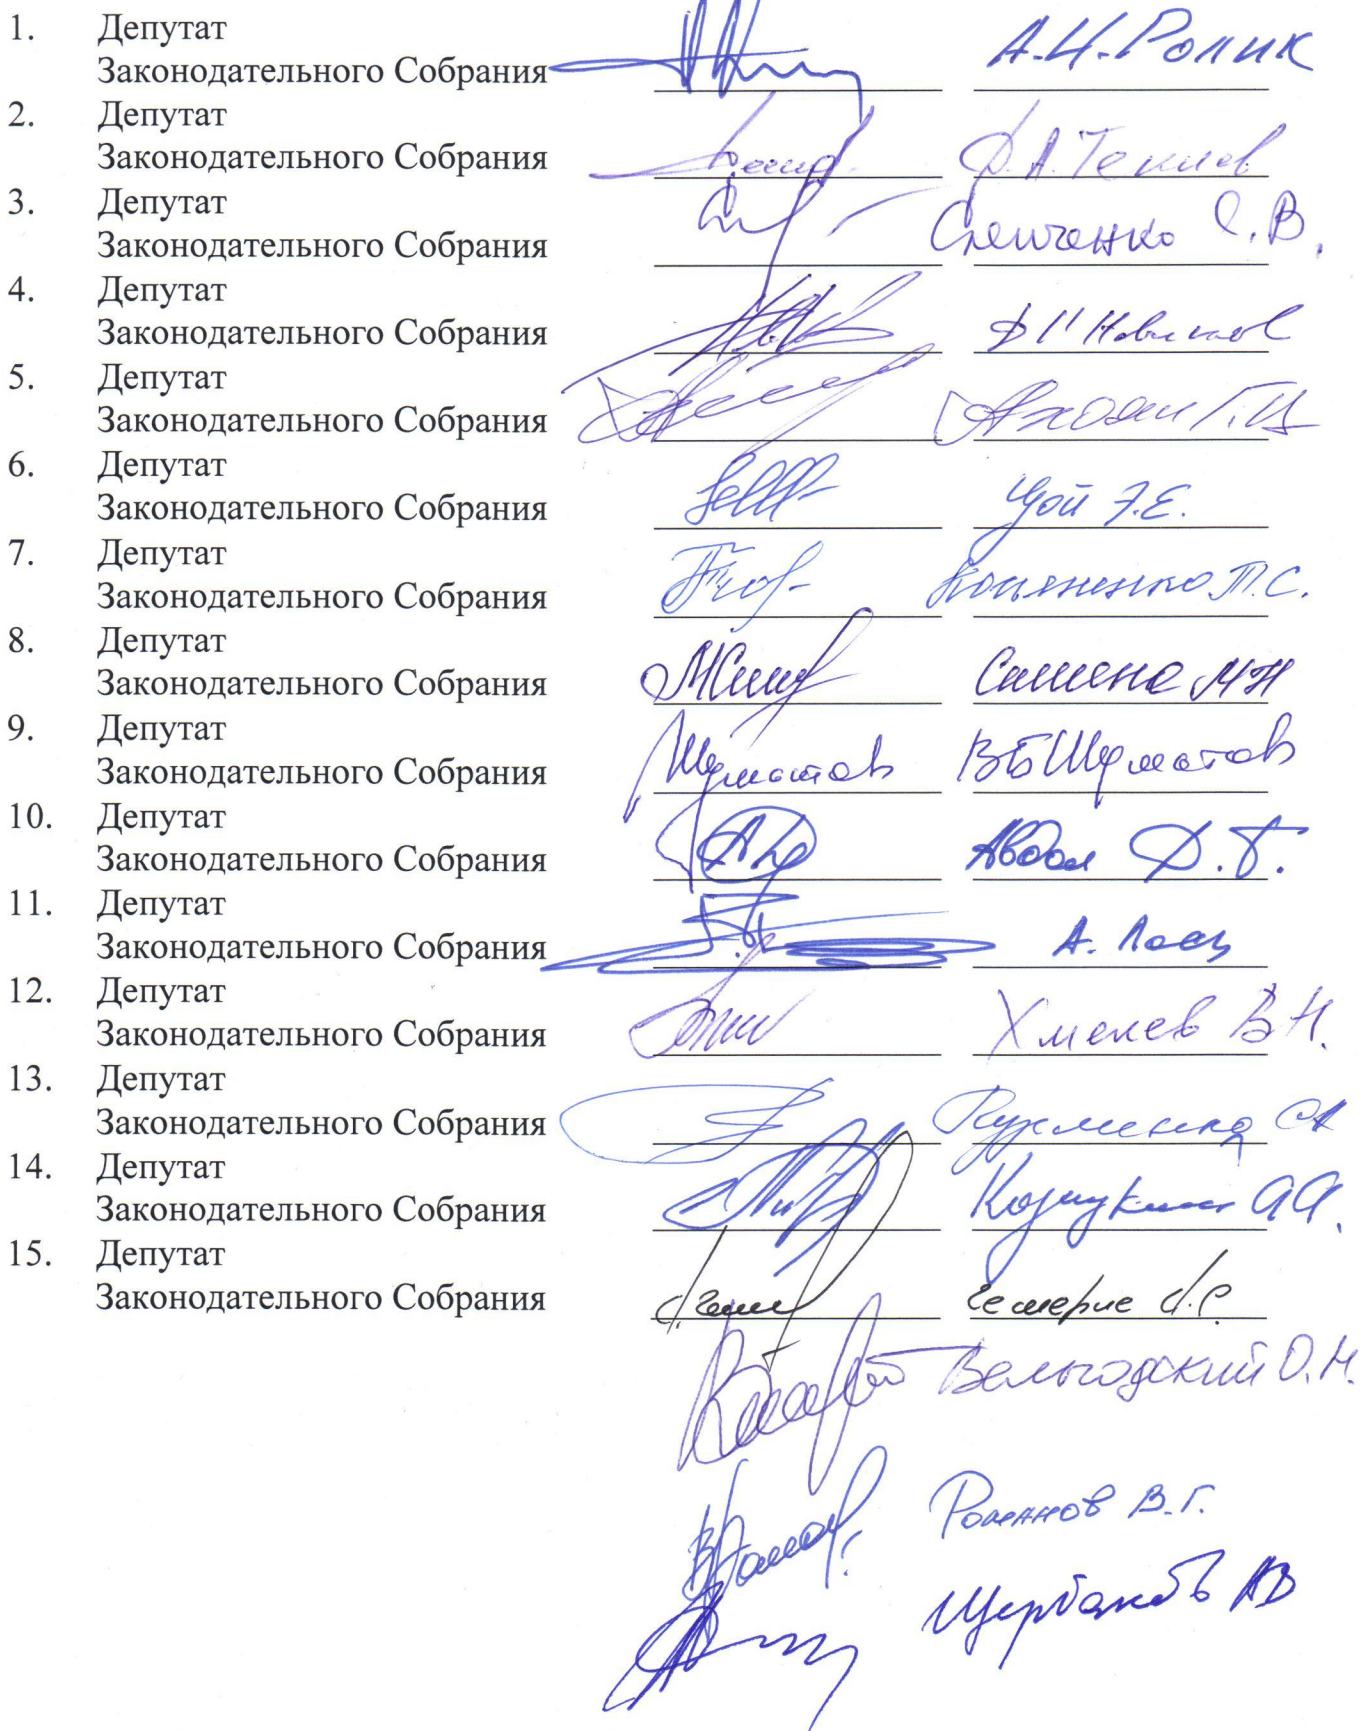 1. Депутат
Законодательного Собрания А.И. Ролик
2. Депутат
Законодательного Собрания Д.А. Текиев
3. Депутат
Законодательного Собрания Слепченко С.В.
4. Депутат
Законодательного Собрания Новиков
5. Депутат
Законодательного Собрания Г.Ц.
6. Депутат
Законодательного Собрания Цой Э.Е.
7. Депутат
Законодательного Собрания Т.С.
8. Депутат
Законодательного Собрания МН
9. Депутат
Законодательного Собрания Шуматов ВБ Шуматов
10. Депутат
Законодательного Собрания Авдои Д.Т.
11. Депутат
Законодательного Собрания А. Лось
12. Депутат
Законодательного Собрания Хмелев В.Н.
13. Депутат
Законодательного Собрания Кузьменко СА
14. Депутат
Законодательного Собрания А.А.
15. Депутат
Законодательного Собрания
Вельгодский О.Н.
Романов В.Г.
Щербаков АВ